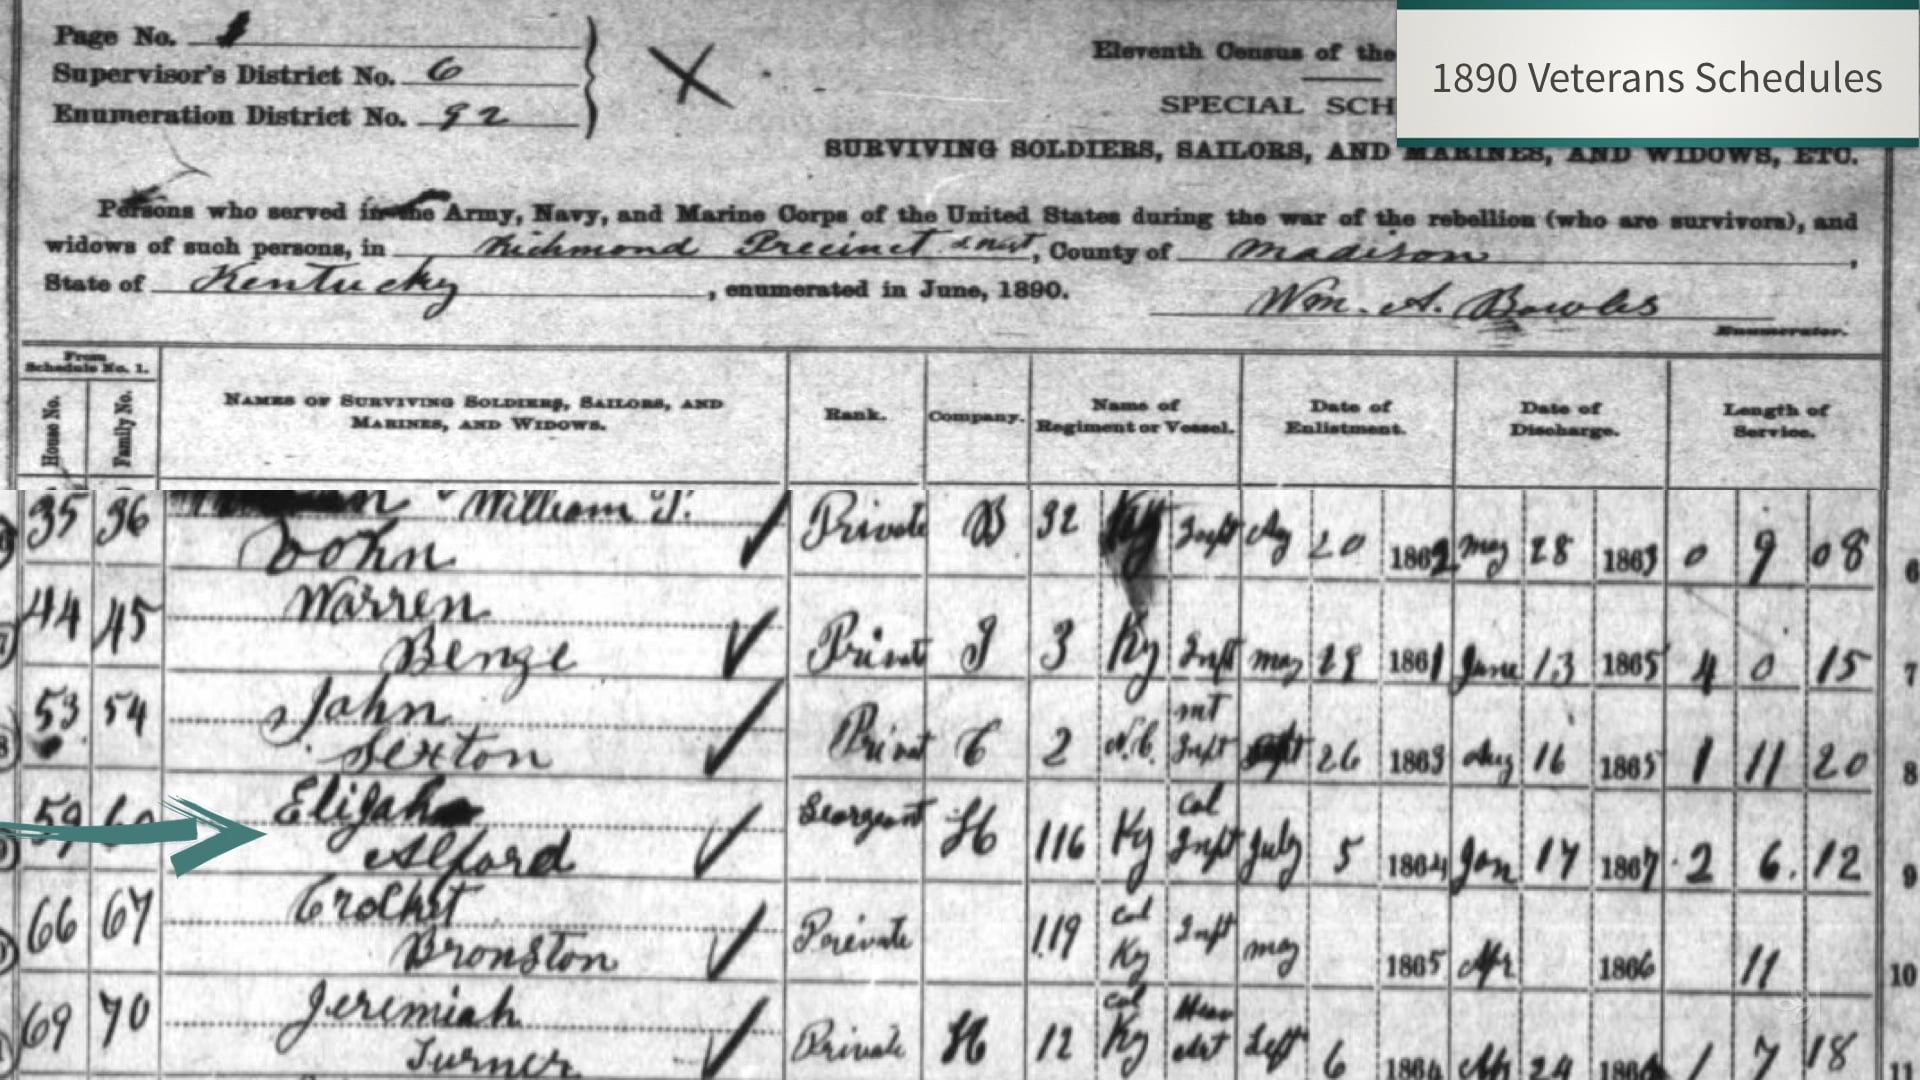 1890 Veterans Schedules
Page No.
Supervisor's District No. 6
Enumeration District No. 92
Eleventh Census of the
SPECIAL SCH
SURVIVING SOLDIERS, SAILORS, AND MARINES, AND WIDOWS, ETC.
Persons who served in the Army, Navy, and Marine Corps of the United States during the war of the rebellion (who are survivors), and
widows of such persons, in Richmond Precinct, County of Madison,
State of Kentucky, enumerated in June, 1890. Wm. A. Bowles
Enumerator.
From Schedule No. 1.
House No. Family No. NAMES OF SURVIVING SOLDIERS, SAILORS, AND MARINES, AND WIDOWS. Rank. Company. Name of Regiment or Vessel. Date of Enlistment. Date of Discharge. Length of Service.
35 36 William T.
John Private B 32 Ky Inft Aug 20 1862 May 28 1863 0 9 08 6
44 45 Warren
Benge Private I 3 Ky Inft May 29 1861 June 13 1865 4 0 15 7
53 54 John
Sexton Privat C 2 N.C. mt Inft Sept 26 1863 Aug 16 1865 1 11 20 8
59 60 Elijah
Alford Seargeant H 116 Ky Col Inft July 5 1864 Jan 17 1867 2 6. 12 9
66 67 Crocket
Bronston Private 119 Col Ky Inft May 1865 Apr 1866 11 10
69 70 Jeremiah
Turner Private H 12 Col Ky Heav Art Sept 6 1864 24 1 7 18 11